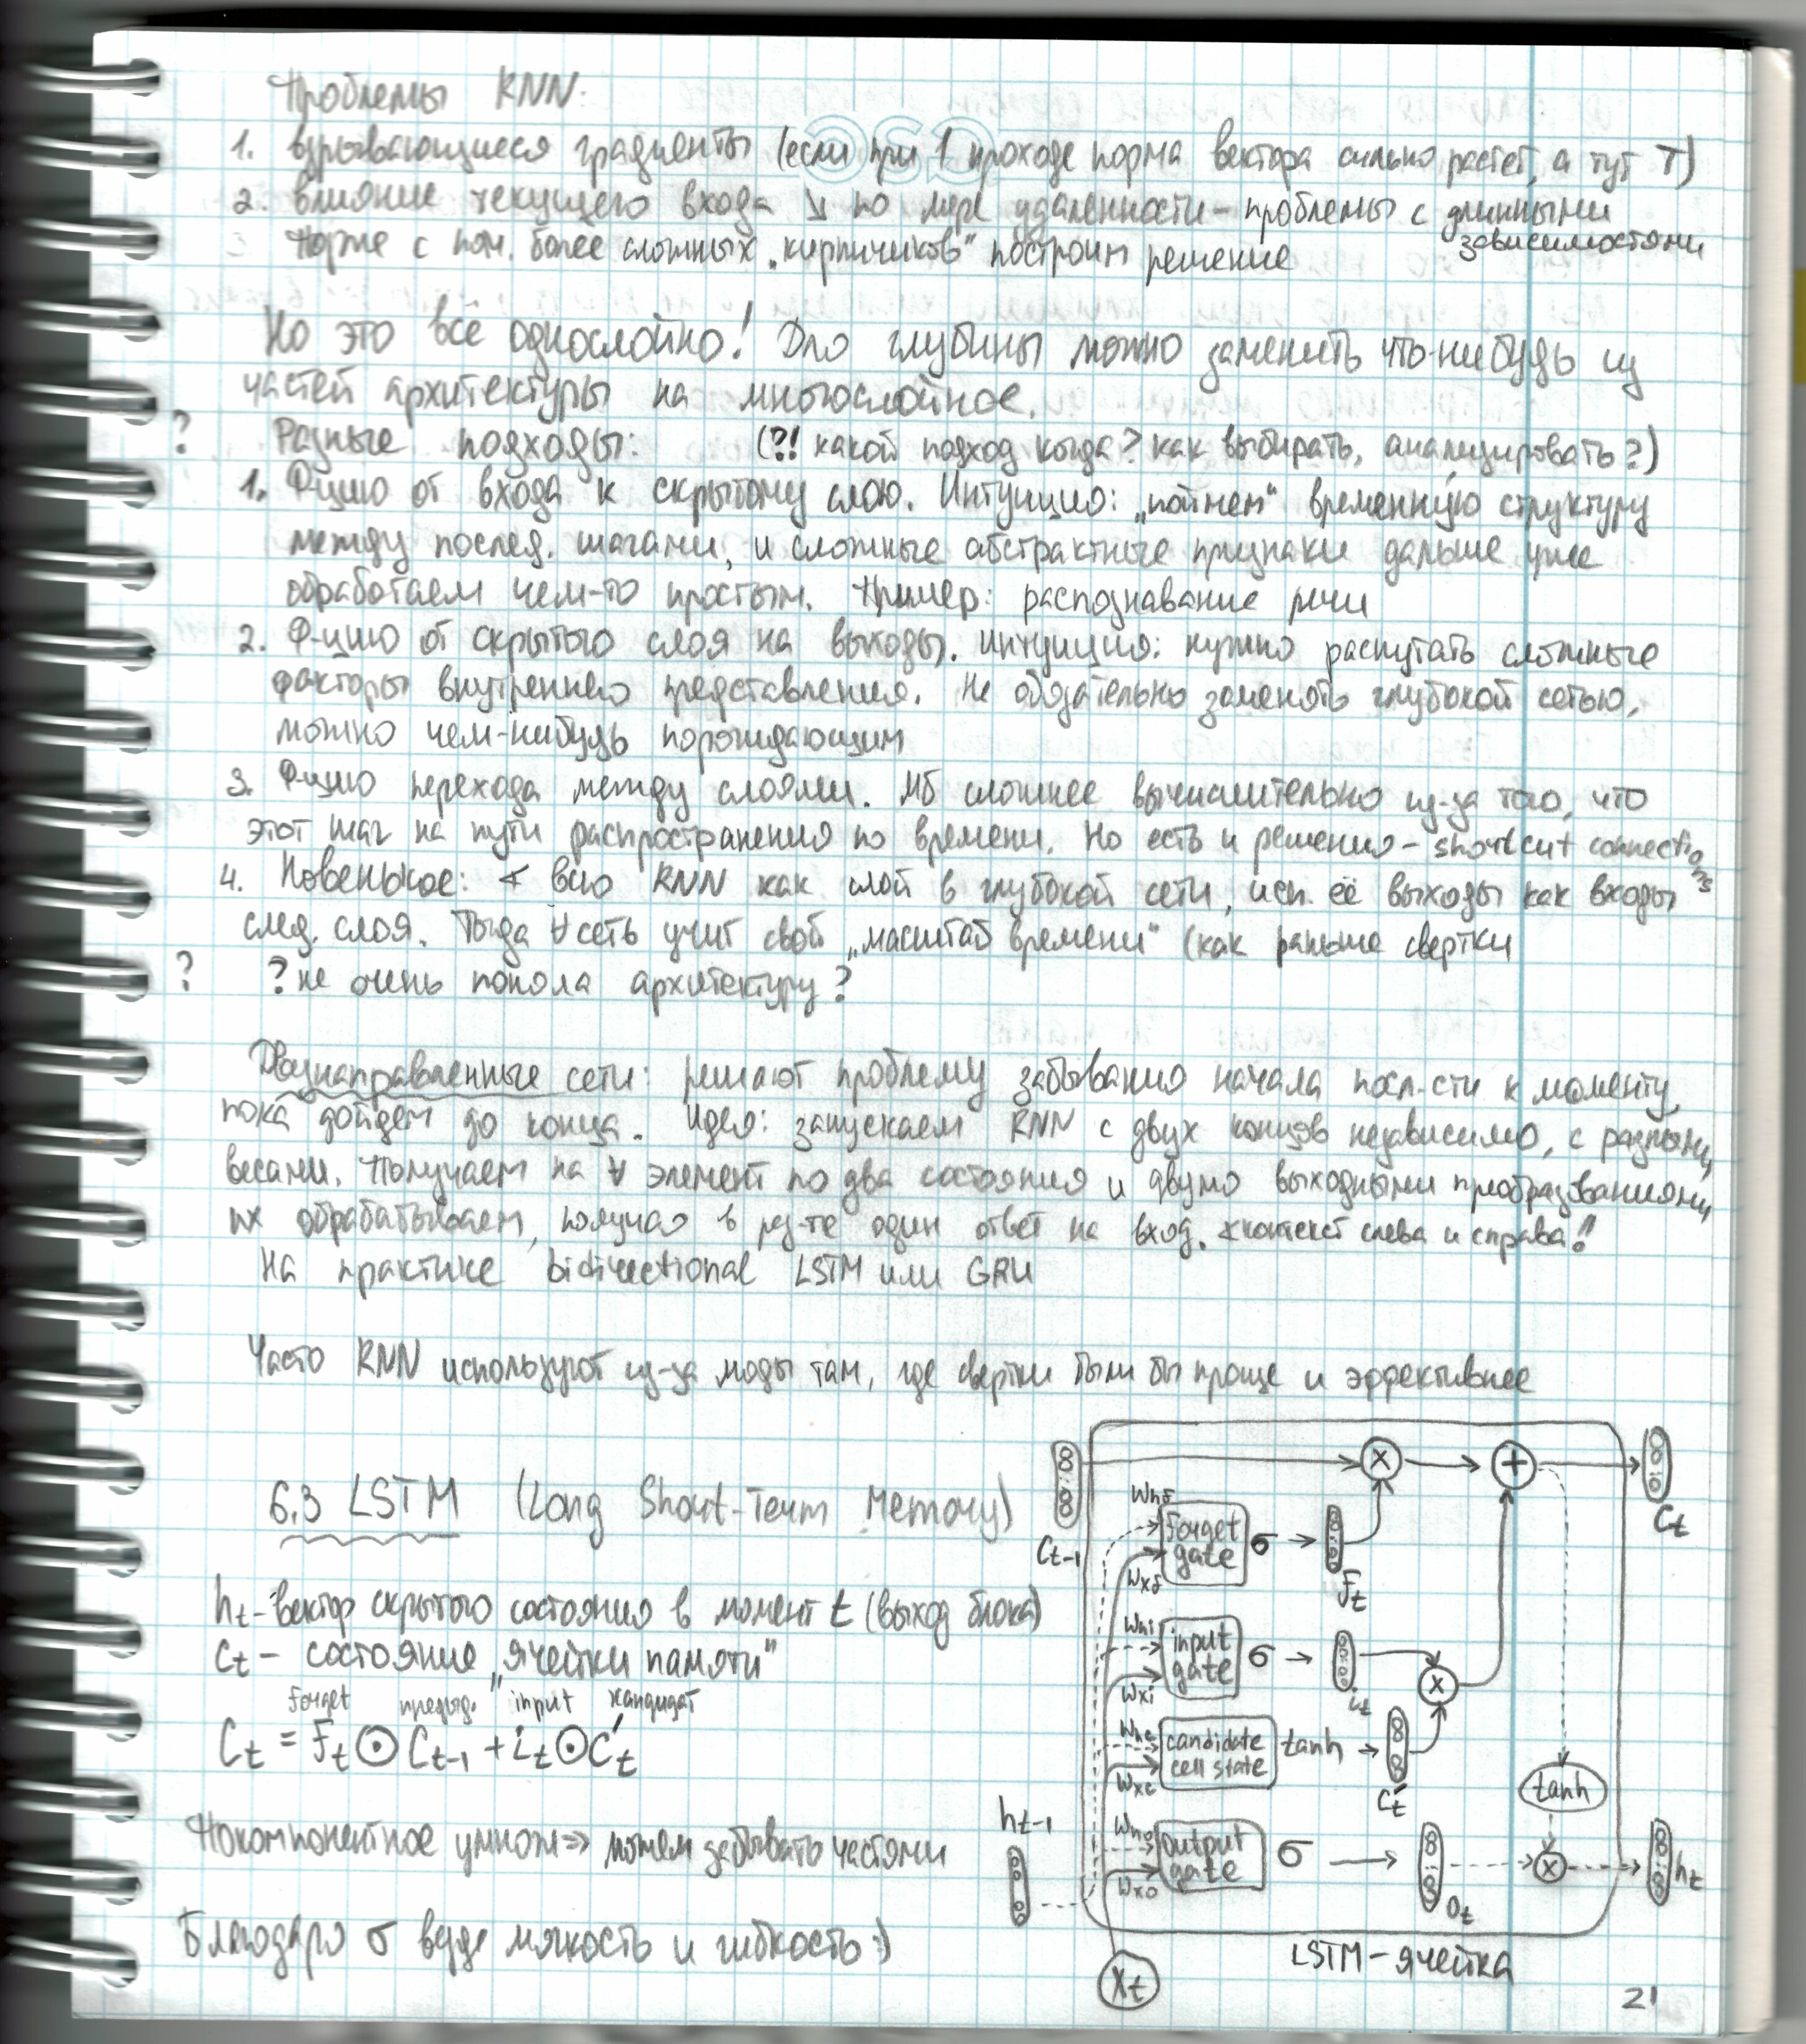 Проблемы RNN:
1. взрывающиеся градиенты (если при 1 проходе норма вектора сильно растет, а тут T)
2. влияние текущего входа ↘ по мере удаленности – проблемы с длинными
зависимостями
Позже с пом. более сложных „кирпичиков" построим решение
Но это всё однослойно! Для глубины можно заменить что-нибудь из
частей архитектуры на многослойное.
? Разные подходы: (?! какой подход когда? как выбирать, анализировать?)
1. Ф-цию от входа к скрытому слою. Интуиция: „поймем" временную структуру
между послед. шагами, и сложные абстрактные признаки дальше уже
обработаем чем-то простым. Пример: распознавание речи
2. Ф-цию от скрытого слоя на выходы. Интуиция: нужно распутать сложные
факторы внутреннего представления. Не обязательно заменять глубокой сетью,
можно чем-нибудь порождающим
3. Ф-цию перехода между слоями. Мб сложнее вычислительно из-за того, что
этот шаг на пути распространения по времени. Но есть и решения – shortcut connections
4. Новенькое: ∢ всю RNN как слой в глубокой сети, исп. её выходы как входы
след. слоя. Тогда ∀ сеть учит свой „масштаб времени" (как раньше свертки
? ? не очень поняла архитектуру?
Двунаправленные сети: решают проблему забывания начала посл-сти к моменту,
пока дойдем до конца. Идея: запускаем RNN с двух концов независимо, с разными
весами. Получаем на ∀ элемент по два состояния и двумя выходными преобразованиями
их обрабатываем, получая в рез-те один ответ на вход. ∢ контекст слева и справа!
На практике bidirectional LSTM или GRU
Часто RNN используют из-за моды там, где свертки были бы проще и эффективнее
6.3 LSTM (Long Short-Term Memory)
h_t – вектор скрытого состояния в момент t (выход блока)
C_t – состояние „ячейки памяти"
forget предыд. input кандидат
C_t = f_t ⊙ C_t-1 + i_t ⊙ C'_t
Покомпонентное умнож ⇒ можем забывать частями
Благодаря σ везде мягкость и гибкость :)
C_t-1
× +
C_t
W_hf
forget
gate
σ
f_t
W_xf
W_hi
input
gate
σ
i_t
×
W_xi
W_hc
candidate
cell state
tanh
C'_t
W_xc
tanh
h_t-1
W_ho
output
gate
σ
o_t
×
h_t
W_xo
LSTM – ячейка
X_t
21